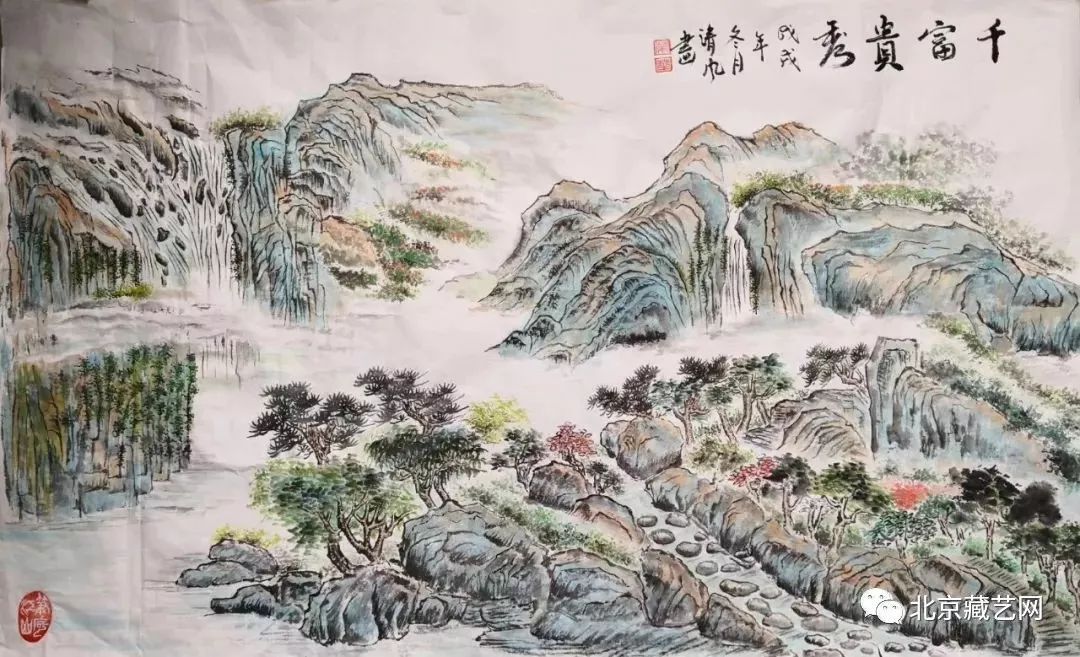 千富貴秀
戊戌
年
冬月
清风
畫
北京藏艺网